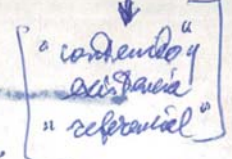 "contenido" y
existencia
"referencial"